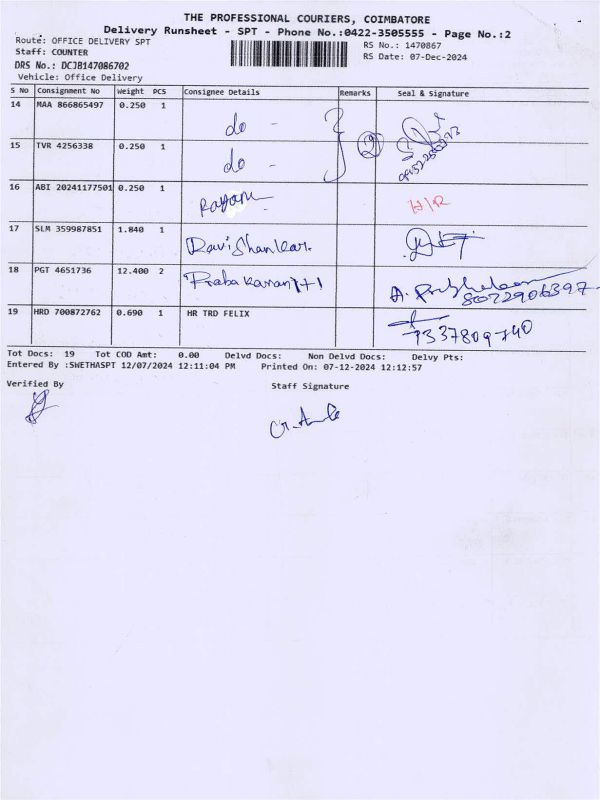 THE PROFESSIONAL COURIERS, COIMBATORE
Delivery Runsheet - SPT - Phone No.:0422-3505555 - Page No.:2
Route: OFFICE DELIVERY SPT
RS No.: 1470867
Staff: COUNTER
RS Date: 07-Dec-2024
DRS No.: DCJB147086702
Vehicle: Office Delivery
S No Consignment No Weight PCS Consignee Details Remarks Seal & Signature
14 MAA 866865497 0.250 1 do -
15 TVR 4256338 0.250 1 do -
16 ABI 20241177501 0.250 1 H/R
17 SLM 359987851 1.840 1 Ravi Shankar.
18 PGT 4651736 12.400 2 Prabakaran 1+1
19 HRD 700872762 0.690 1 HR TRD FELIX
Tot Docs: 19 Tot COD Amt: 0.00 Delvd Docs: Non Delvd Docs: Delvy Pts:
Entered By :SWETHASPT 12/07/2024 12:11:04 PM Printed On: 07-12-2024 12:12:57
Verified By Staff Signature